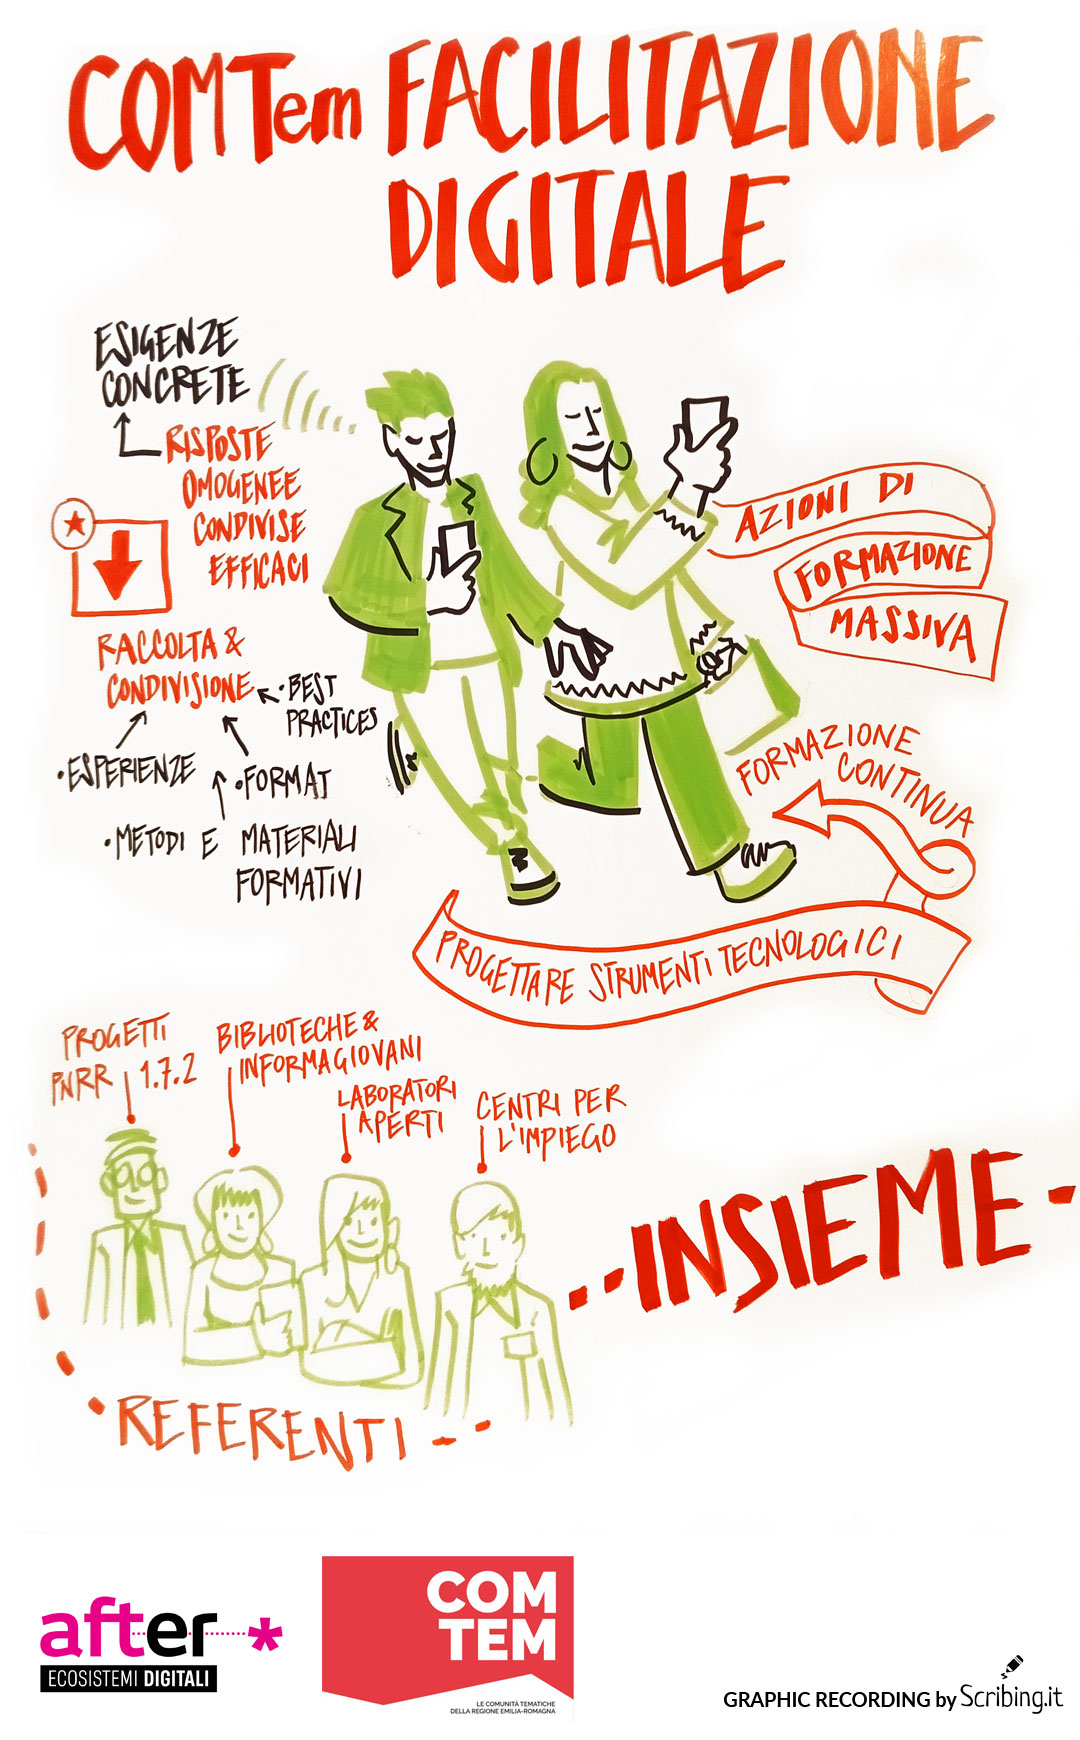 COMTem FACILITAZIONE
DIGITALE
ESIGENZE
CONCRETE
RISPOSTE
OMOGENEE
CONDIVISE
EFFICACI
RACCOLTA &
CONDIVISIONE
• BEST
PRACTICES
• ESPERIENZE
• FORMAT
• METODI E MATERIALI
FORMATIVI
AZIONI DI
FORMAZIONE
MASSIVA
FORMAZIONE
CONTINUA
PROGETTARE STRUMENTI TECNOLOGICI
PROGETTI
PNRR 1.7.2
BIBLIOTECHE &
INFORMAGIOVANI
LABORATORI
APERTI
CENTRI PER
L'IMPIEGO
INSIEME
REFERENTI
after
ECOSISTEMI DIGITALI
COM
TEM
LE COMUNITÀ TEMATICHE
DELLA REGIONE EMILIA-ROMAGNA
GRAPHIC RECORDING by Scribing.it